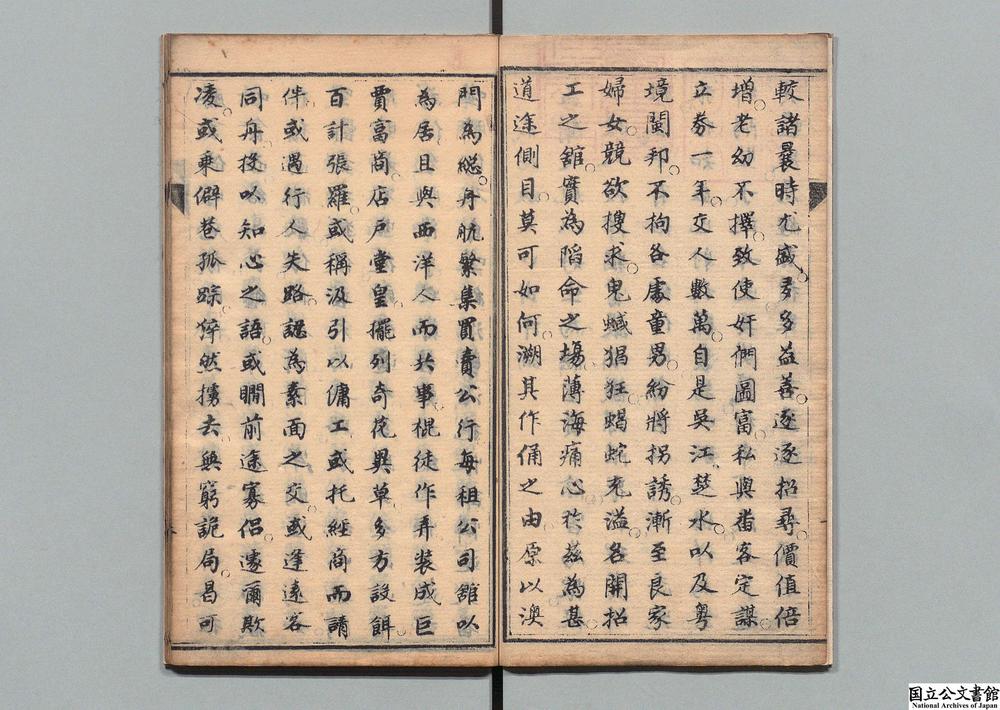 較諸曩時尤盛多多益善逐逐招尋價值倍
增老幼不擇致使奸們圖富私與番客定謀
立券一年交人數萬自是吳江楚水以及粤
境閩邦不拘各處童男紛將拐誘漸至良家
婦女競欲搜求鬼蜮猖狂蝎蛇充溢名開招
工之舘實為陷命之塲薄海痛心於兹為甚
道途側目莫可如何溯其作俑之由原以澳
門為總舟航繁集買賣公行每租公司舘以
為居且與西洋人而共事棍徒作弄装成巨
賈富商店戶堂皇擺列奇花異草多方設餌
百計張羅或稱汲引以傭工或托經商而請
伴或遇行人失路認為素面之交或逢遠客
同舟投以知心之語或瞷前途寡侶遽爾欺
凌或乗僻巷孤踪猝然擄去無窮詭局曷可
国立公文書館
National Archives of Japan